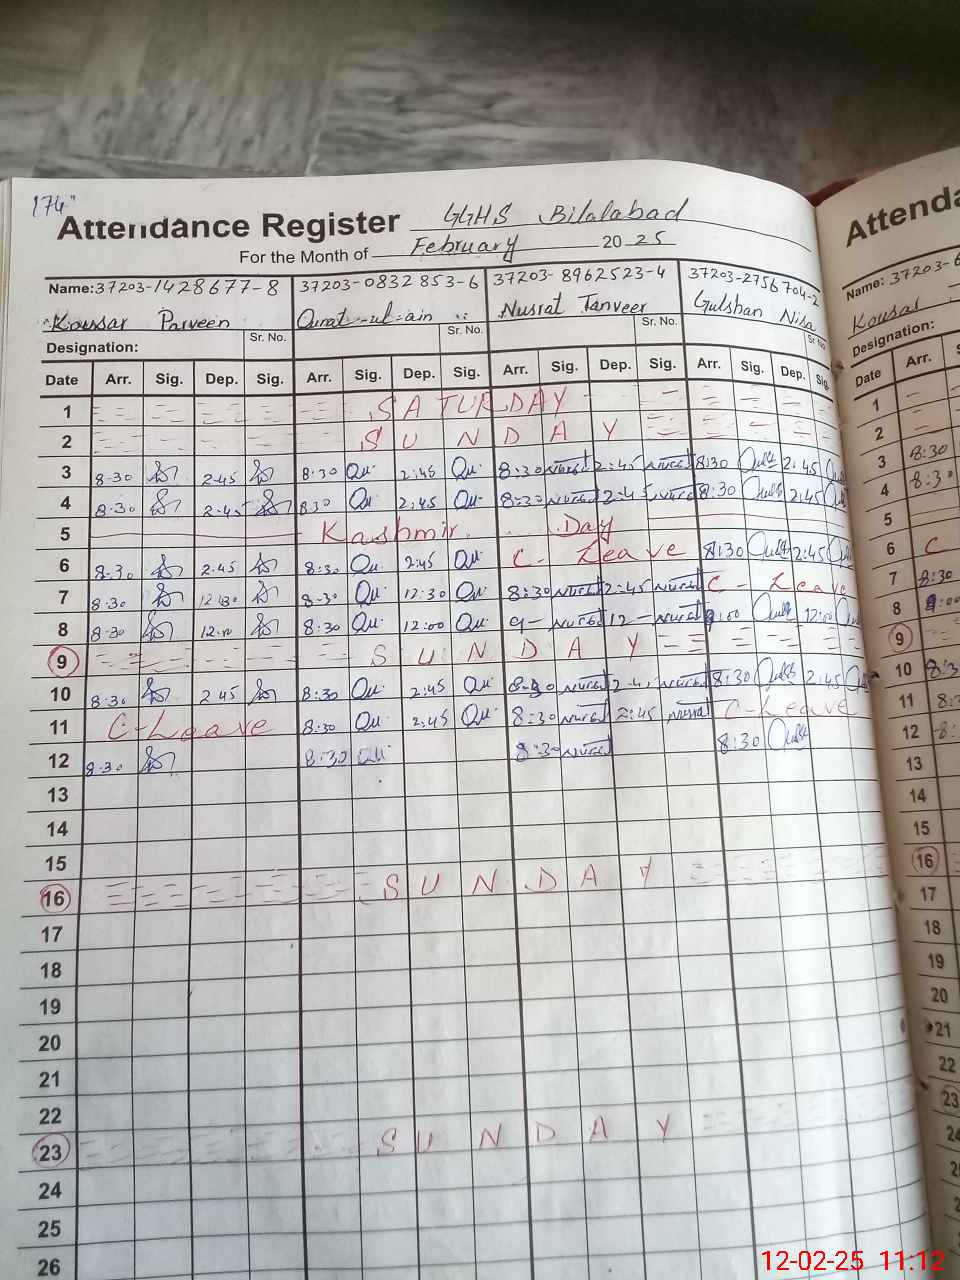 174
Attendance Register GGHS Bilalabad
For the Month of February 2025
Name: 37203-1428677-8 37203-0832853-6 37203-8962523-4 37203-2756704-2
Kousar Parveen Qurat-ul-ain Nusrat Tanveer Gulshan Nisa
Designation: Sr. No. Sr. No. Sr. No. Sr. No.
Date Arr. Sig. Dep. Sig. Arr. Sig. Dep. Sig. Arr. Sig. Dep. Sig. Arr. Sig. Dep. Sig.
1 SATURDAY
2 SUNDAY
3 8-30 2-45 8:30 Qu. 2:45 Qu. 8:30 2:45 8:30 2:45
4 8-30 2-45 830 Qu. 2:45 Qu. 8:30 2:45 8:30 2:45
5 Kashmir Day
6 8-30 2.45 8:30 Qu. 2:45 Qu. C-Leave 8:30 2:45
7 8-30 12:30 8-30 Qu. 12:30 Qu. 8:30 2:45 C-Leave
8 8-30 8:30 Qu. 12:00 Qu. 9- 12- 12:00
9 SUNDAY
10 8-30 2 45 8:30 Qu. 2:45 Qu. 8:30 2:45
11 C-Leave 8:30 Qu. 2:45 Qu. 8:30 2:45 C-Leave
12 8-30 8:30 Qu. 8:30 8:30
13
14
15
16 SUNDAY
17
18
19
20
21
22
23 SUNDAY
24
25
26
Attenda
Name: 37203-6
Kousar
Designation:
Date Arr.
1
2
3 8:30
4 8:30
5
6 C
7 8:30
8
9
10 8:3
11 8:
12 8:
13
14
15
16
17
18
19
20
21
22
23
24
12-02-25 11:12